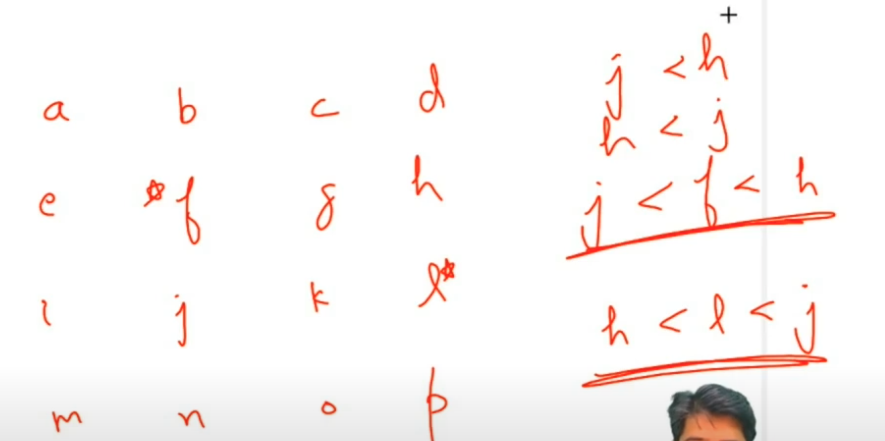 a b c d
e *f g h
i j k l*
m n o p
j < h
h < j
j < f < h
h < l < j